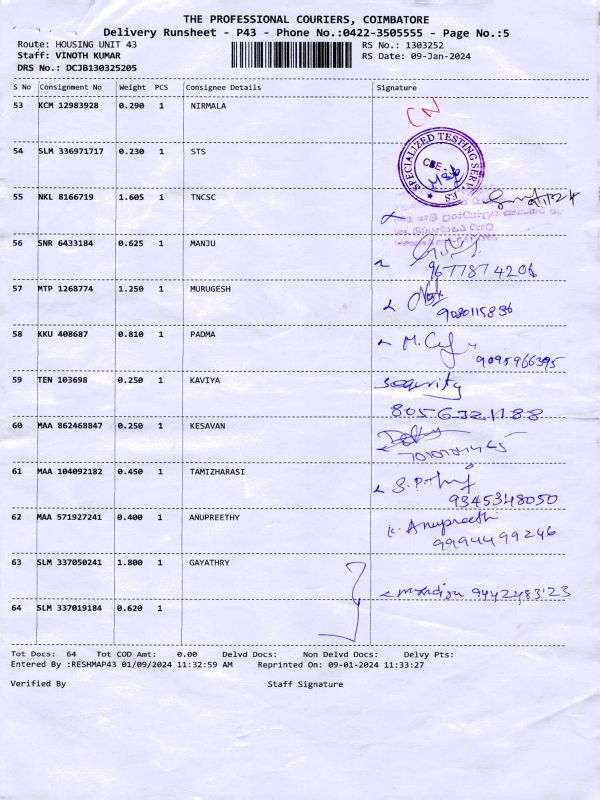 THE PROFESSIONAL COURIERS, COIMBATORE
Delivery Runsheet - P43 - Phone No.:0422-3505555 - Page No.:5
Route: HOUSING UNIT 43 RS No.: 1303252
Staff: VINOTH KUMAR RS Date: 09-Jan-2024
DRS No.: DCJB130325205
S No Consignment No Weight PCS Consignee Details Signature
53 KCM 12983928 0.290 1 NIRMALA CN
54 SLM 336971717 0.230 1 STS
SPECIALIZED TESTING SERVICES
CBE
55 NKL 8166719 1.605 1 TNCSC 9/1/24
56 SNR 6433184 0.625 1 MANJU
9677874206
57 MTP 1268774 1.250 1 MURUGESH
9080115836
58 KKU 408687 0.810 1 PADMA
9095966395
59 TEN 103698 0.250 1 KAVIYA security
8056321188
60 MAA 862468847 0.250 1 KESAVAN
61 MAA 104092182 0.450 1 TAMIZHARASI
9345348050
62 MAA 571927241 0.400 1 ANUPREETHY K. Anupreethi
9994499246
63 SLM 337050241 1.800 1 GAYATHRY
9442483123
64 SLM 337019184 0.620 1
Tot Docs: 64 Tot COD Amt: 0.00 Delvd Docs: Non Delvd Docs: Delvy Pts:
Entered By :RESHMAP43 01/09/2024 11:32:59 AM Reprinted On: 09-01-2024 11:33:27
Verified By Staff Signature